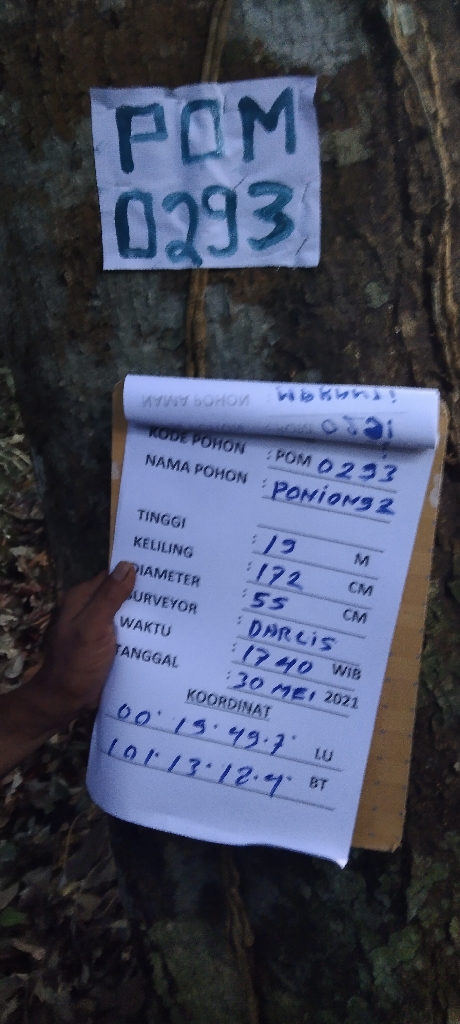 POM
0293
KODE POHON : POM 0293
NAMA POHON : PONiONgz
TINGGI : 19 M
KELILING : 172 CM
DIAMETER : 55 CM
SURVEYOR : DARLIS
WAKTU : 1740 WIB
TANGGAL : 30 MEI 2021
KOORDINAT
00° 19' 49.7" LU
101° 13' 12.4" BT